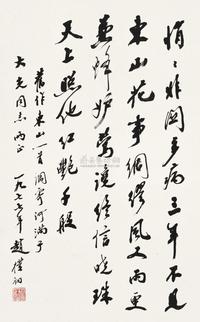 悄悄非关多病三年不见
东山花事绸缪风又雨更
兼蜂妒莺谗终信晓珠
天上照他红艳千般
旧作东山一首调寄河满子
大光同志两正
一九七七年赵朴初